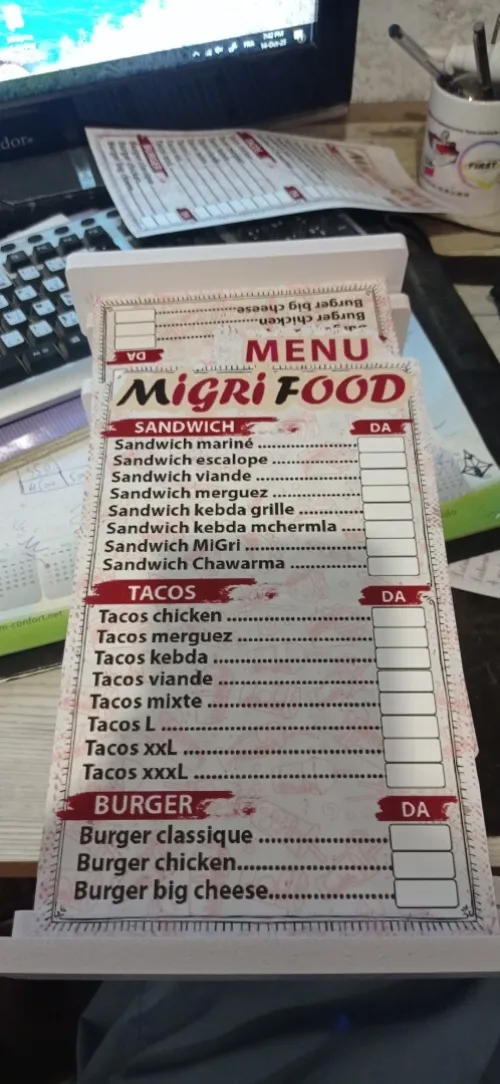 7:42 PM
FRA
14-Oct-25
dor®
FIRST
Burger big cheese
Burger chicken
DA
MENU
MiGRi FOOD
SANDWICH DA
Sandwich mariné
Sandwich escalope
Sandwich viande
Sandwich merguez
Sandwich kebda grille
Sandwich kebda mchermla
Sandwich MiGri
Sandwich Chawarma
TACOS DA
Tacos chicken
Tacos merguez
Tacos kebda
Tacos viande
Tacos mixte
Tacos L
Tacos xxL
Tacos xxxL
BURGER DA
Burger classique
Burger chicken
Burger big cheese
m-confort.net